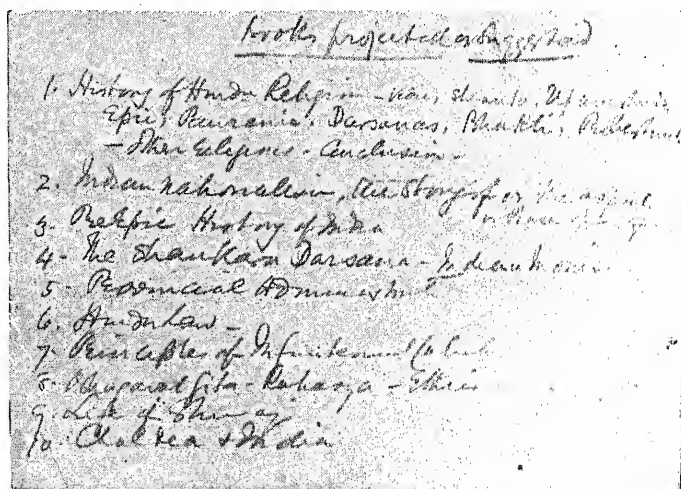 books projected or Suggested
1. History of Hindu Religion - Vedas, Shrauta, Upanishads
Epic, Pauranic, Darsanas, Bhakti,
- Other religions - Conclusion -
2. Indian Nationalism, the Story of
3. PreEpic History of India
4 - The Shankara Darsana - Indian Monism
5 - Provincial Administration
6. Hindu Law -
7. Principles of Infinitesimal Calculus
8. Bhagavad Gita - Rahasya - Ethics
9. Life of Shivaji
10. Chaldea & India